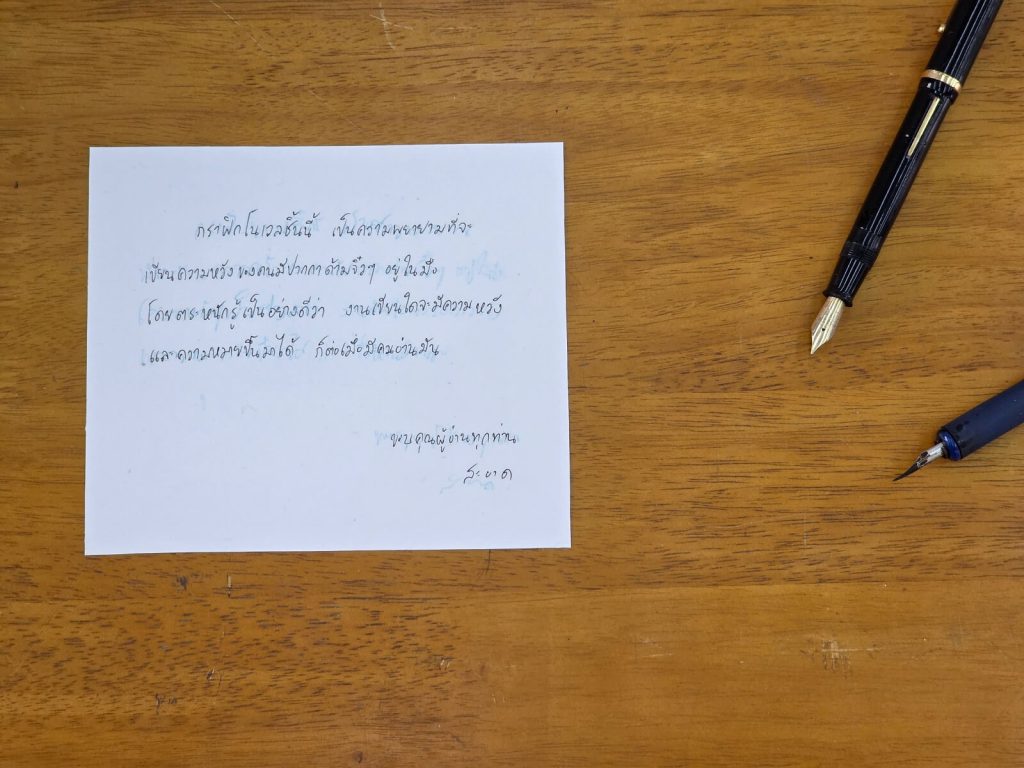 กราฟิกโนเวลชิ้นนี้ เป็นความพยายามที่จะ
เขียนความหวังของคนมีปากกาด้ามจิ๋วๆ อยู่ในมือ
โดยตระหนักรู้เป็นอย่างดีว่า งานเขียนใดจะมีความหวัง
และความหมายขึ้นมาได้ ก็ต่อเมื่อมีคนอ่านมัน
ขอบคุณผู้อ่านทุกท่าน
สะอาด